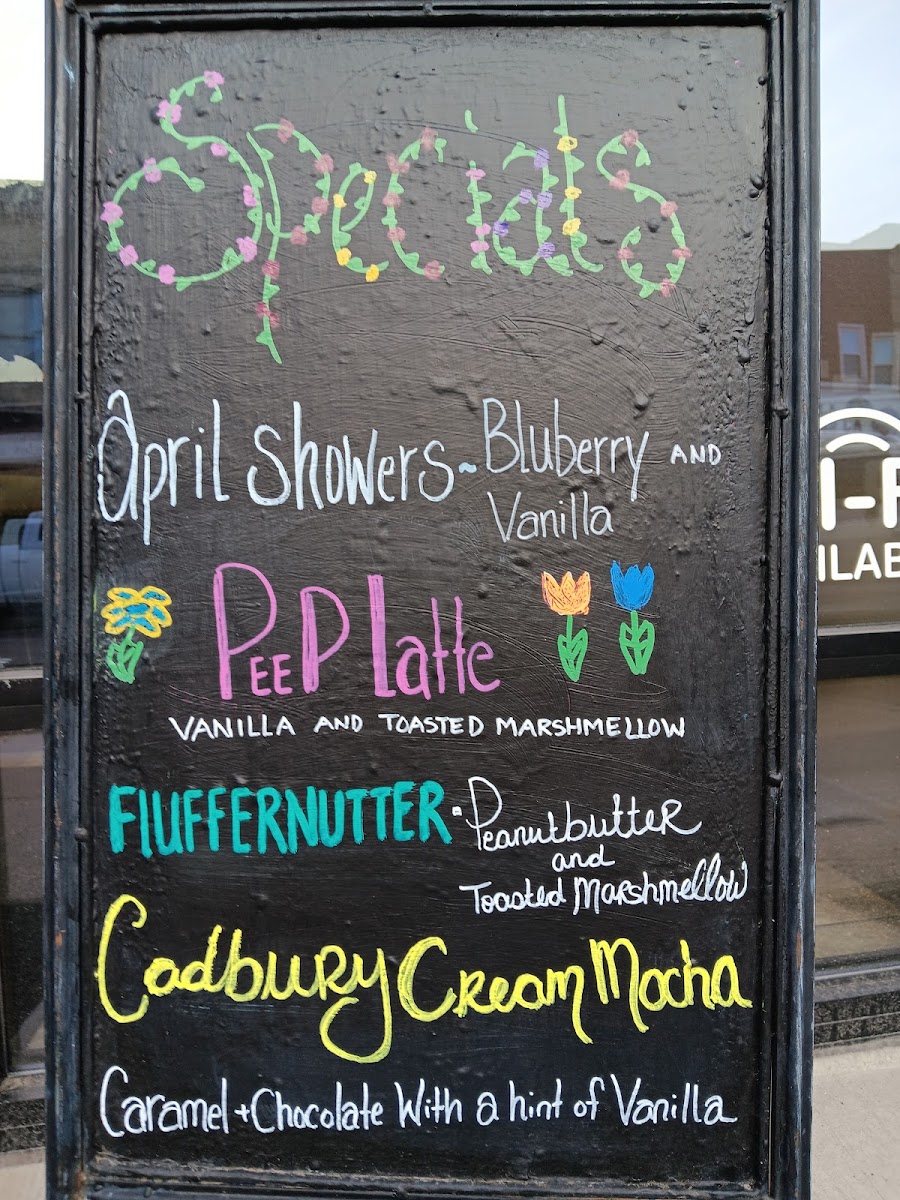 Specials
April Showers ~ Bluberry AND
Vanilla
PEEP latte
VANILLA AND TOASTED MARSHMELLOW
FlUFFERNUTTER - PeanutbutteR
and
Toasted Marshmellow
Cadbury Cream Mocha
Caramel + Chocolate With a hint of Vanilla